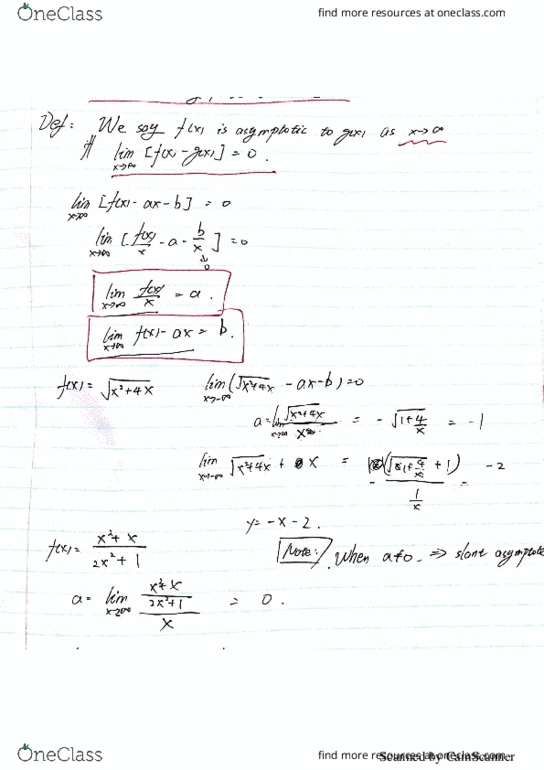 OneClass
find more resources at oneclass.com
Def: We say f(x) is asymptotic to g(x) as x→∞
iff lim x→∞ [f(x) - g(x)] = 0.
lim x→∞ [f(x) - ax - b] = 0
lim x→∞ [f(x)/x - a - b/x] = 0
↓ 0
lim x→∞ f(x)/x = a.
lim x→∞ f(x) - ax = b.
f(x) = √x²+4x lim x→-∞ (√x²+4x - ax - b) = 0
a = lim √x²+4x / x = - √1+4/x = -1
lim x→-∞ √x²+4x + x = (√1+4/x + 1) / 1/x - 2
y = -x - 2.
f(x) = x²+x / 2x²+1 Note: When a≠0. ⇒ slant asymptote
a = lim x→∞ x²+x / 2x²+1 / x = 0.
OneClass
find more resources at oneclass.com
Scanned by CamScanner